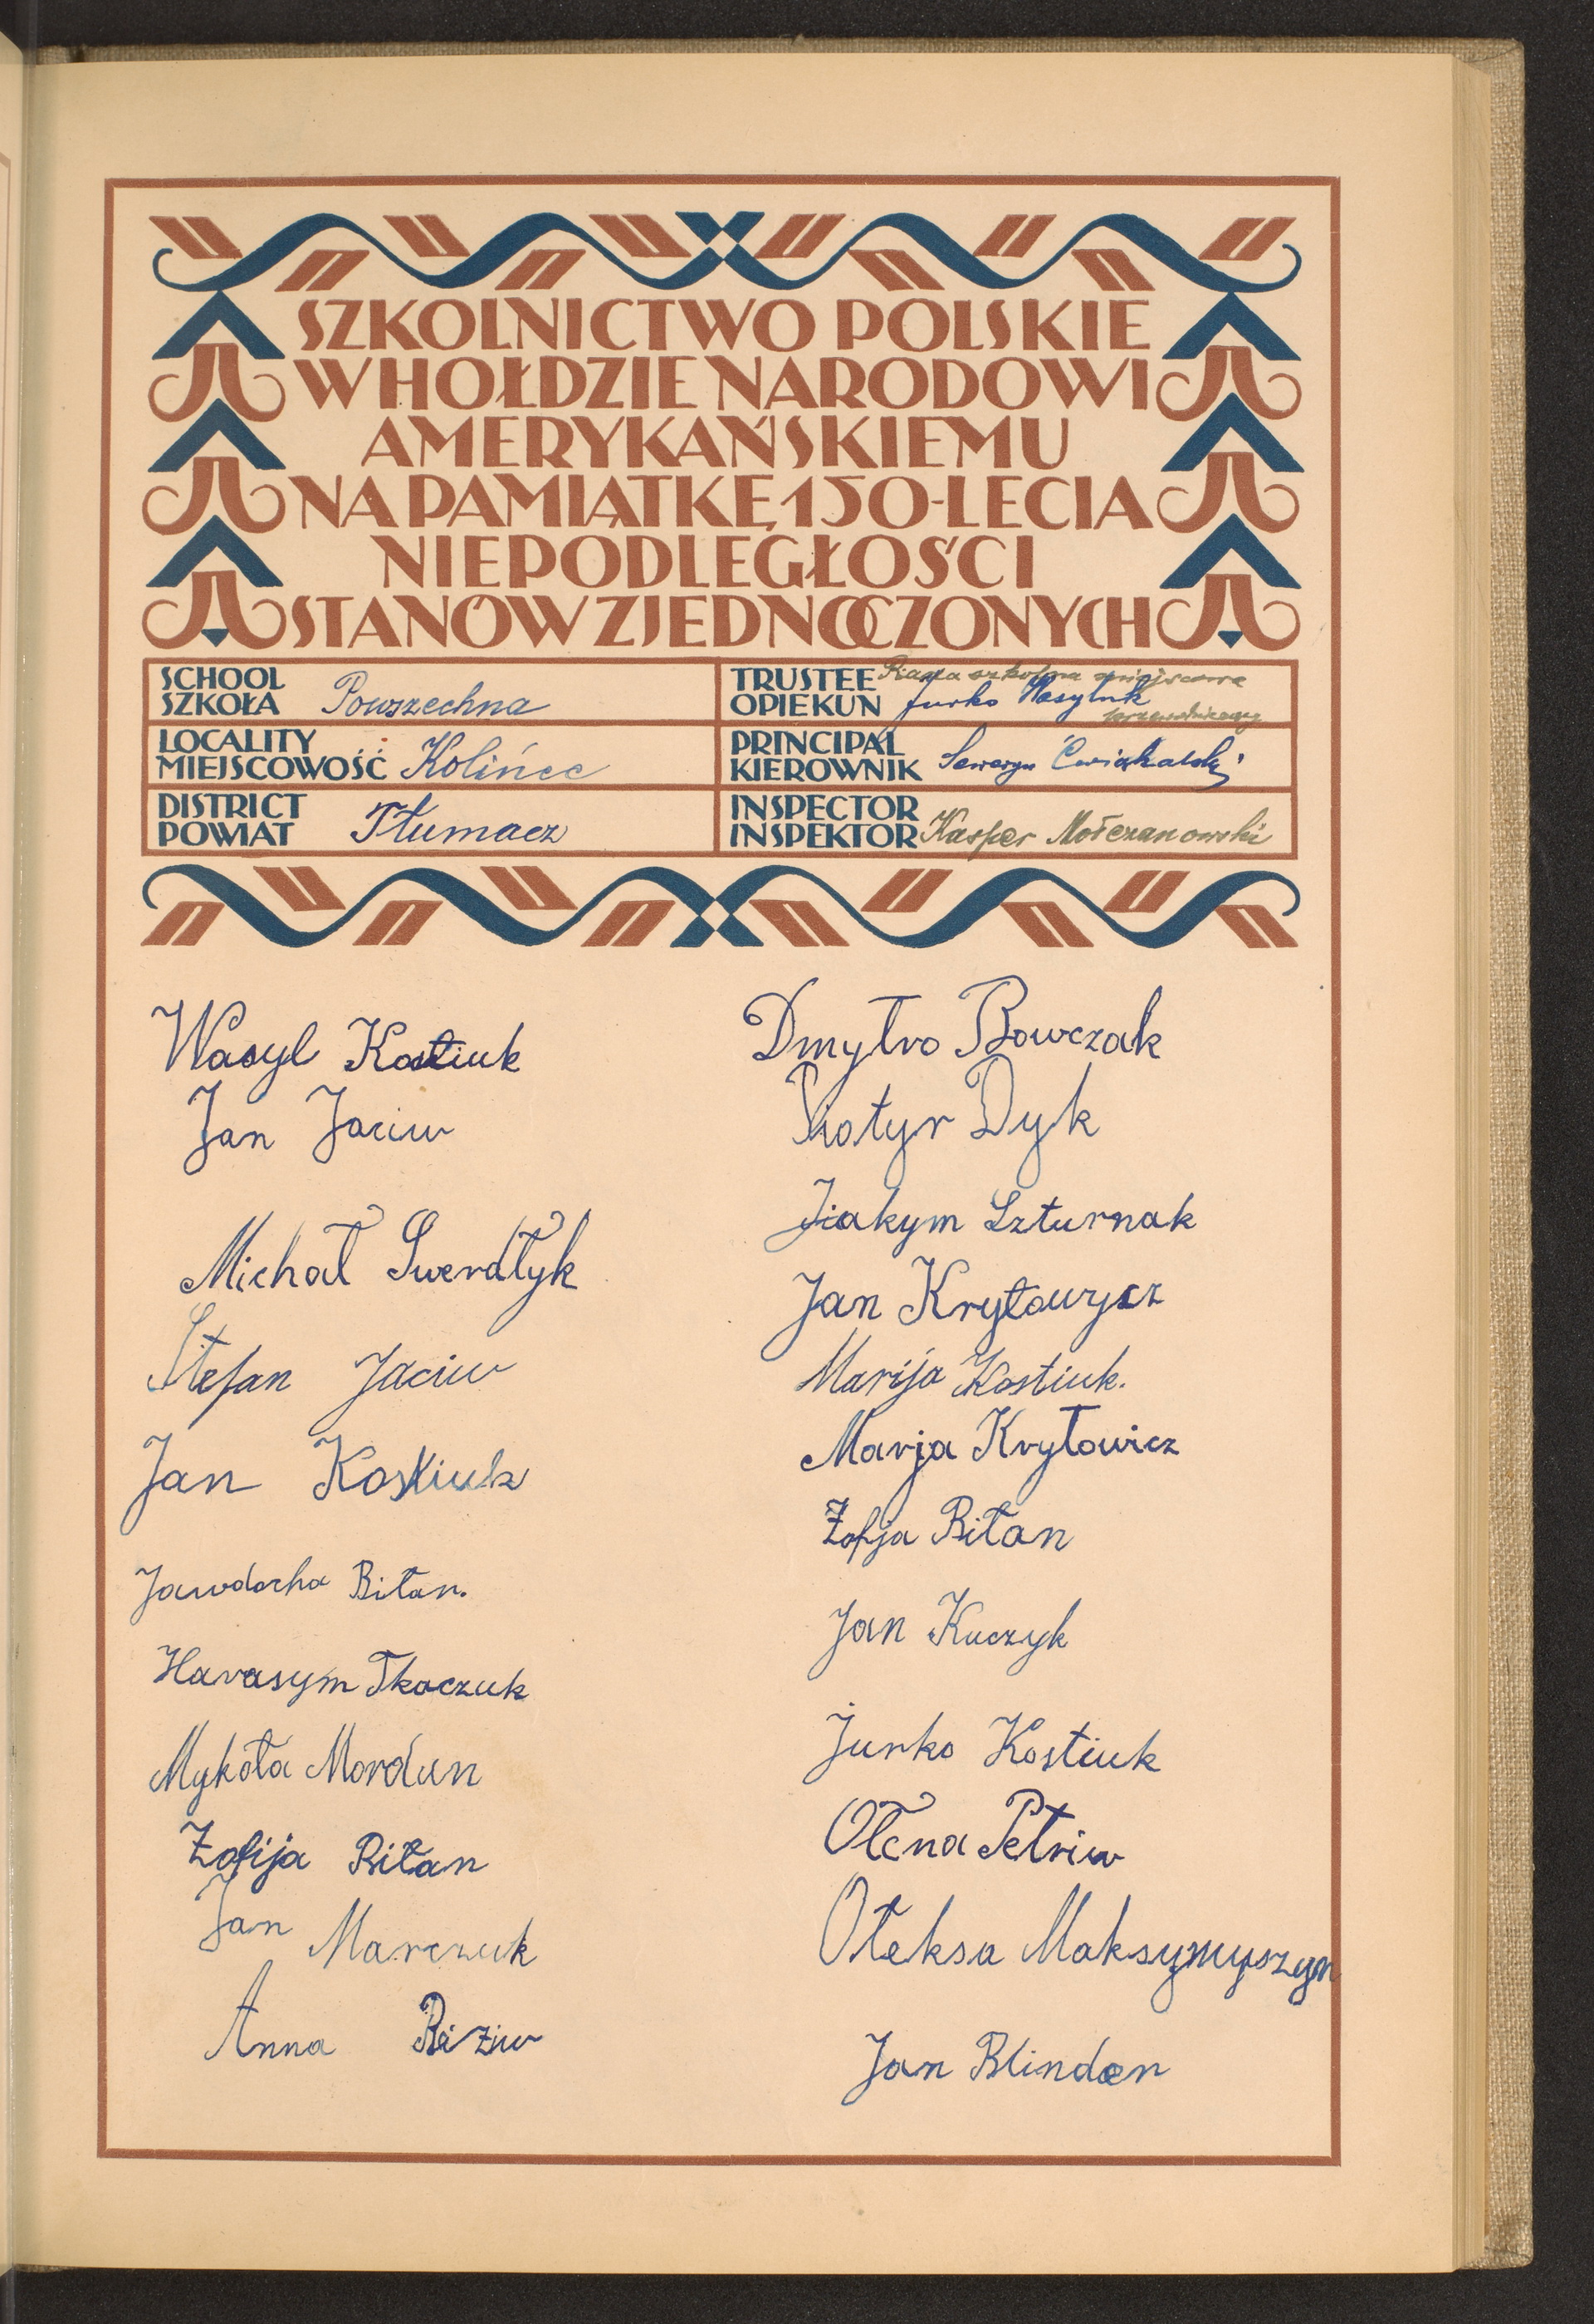 SZKOLNICTWO POLSKIE
W HOŁDZIE NARODOWI
AMERYKAŃSKIEMU
NA PAMIĄTKĘ 150-LECIA
NIEPODLEGŁOŚCI
STANÓW ZJEDNOCZONYCH
SCHOOL
SZKOŁA Powszechna
LOCALITY
MIEJSCOWOŚĆ Kolińce
DISTRICT
POWIAT Tłumacz
TRUSTEE Rada szkolna miejscowa
OPIEKUN Jurko Wasyluk
przewodniczący
PRINCIPAL
KIEROWNIK Seweryn Ćwiąkalski
INSPECTOR
INSPEKTOR Kasper Mołczanowski
Wasyl Kostiuk
Jan Jaciw
Michał Swerdłyk
Stefan Jaciw
Jan Kostiuk
Jawdocha Biłan.
Harasym Tkaczuk
Mykoła Mordun
Zofija Biłan
Jan Marczuk
Anna Biziw
Dmytro Bowczak
Piotyr Dyk
Jiakym Szturnak
Jan Kryłowycz
Marija Kostiuk.
Marja Kryłowicz
Zofja Biłan
Jan Kuczyk
Jurko Kostiuk
Ołena Petriw
Ołeksa Maksymyszyn
Jan Blinder